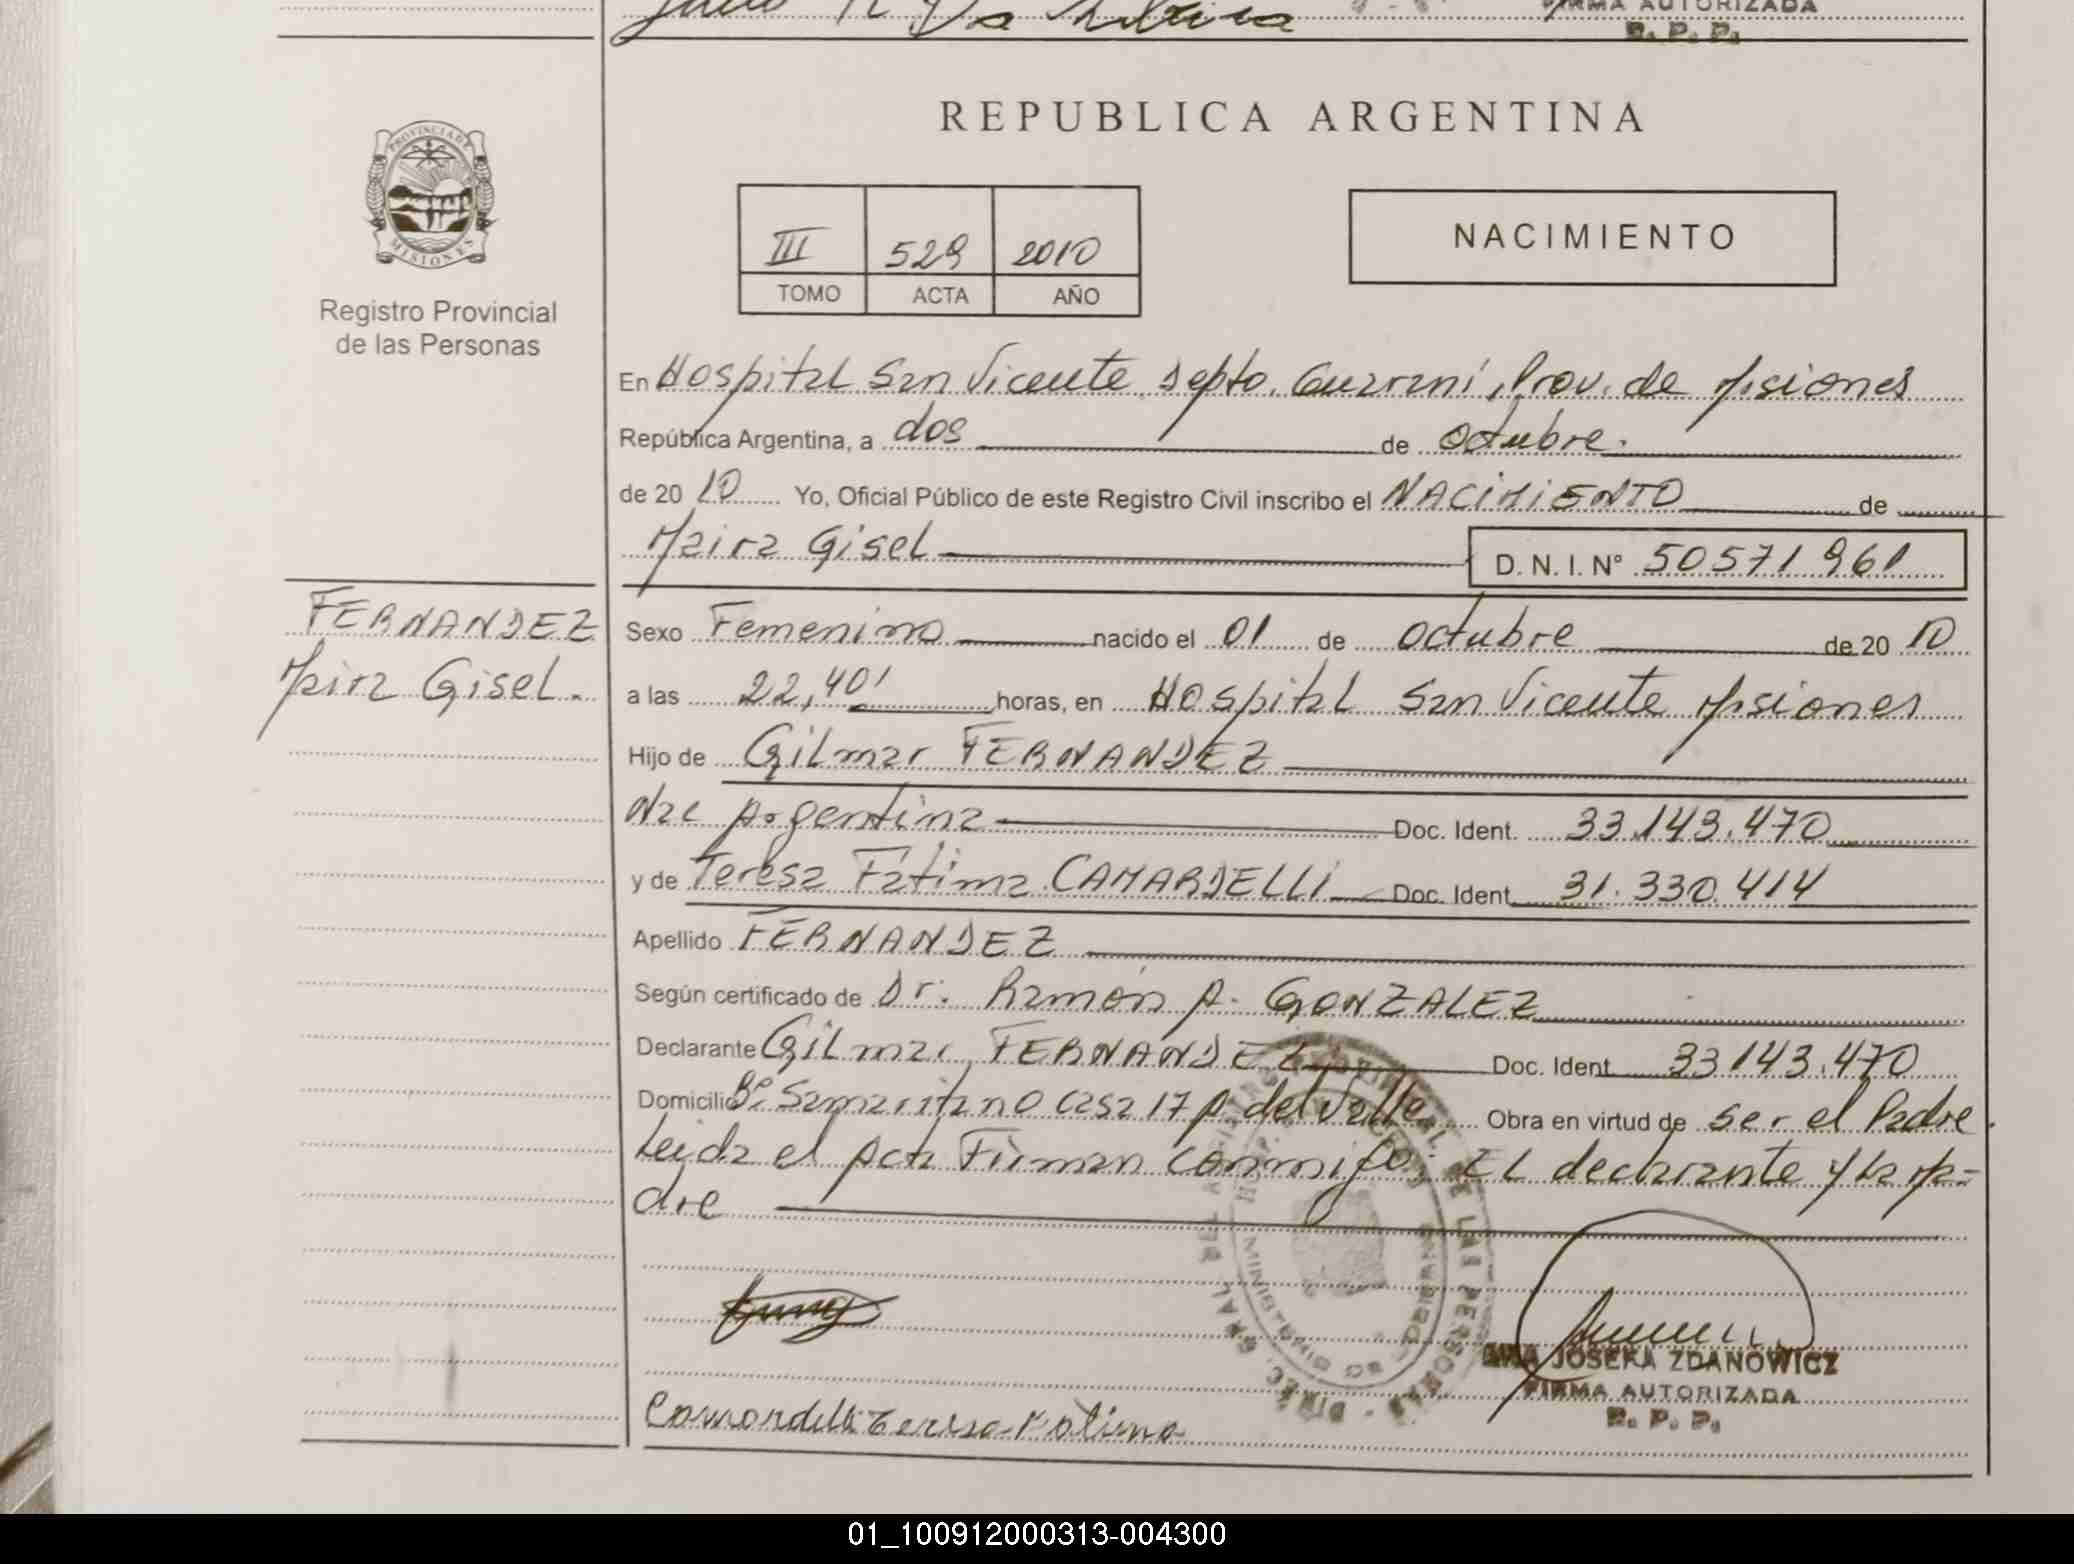 FIRMA AUTORIZADA
R. P. P.
REPUBLICA ARGENTINA
PROVINCIA DE
MISIONES
Registro Provincial
de las Personas
III 529 2010
TOMO ACTA AÑO
NACIMIENTO
En Hospital San Vicente Depto. Guarani, Prov. de Misiones
República Argentina, a dos de octubre.
de 20 10 Yo, Oficial Público de este Registro Civil inscribo el NACIMIENTO de
Maira Gisel D. N. I. Nº 50571961
FERNANDEZ
Maira Gisel.
Sexo Femenino nacido el 01 de octubre de 20 10
a las 22,40' horas, en Hospital San Vicente Misiones
Hijo de Gilmar FERNANDEZ
Nac Argentina Doc. Ident. 33.143.470
y de Teresa Fatima CAMARDELLI Doc. Ident. 31.330.414
Apellido FERNANDEZ
Según certificado de Dr. Ramón A. GONZALEZ
Declarante Gilmar FERNANDEZ Doc. Ident. 33143.470
Domicilio Bº Samaritano casa 17 A. del Valle Obra en virtud de ser el Padre.
Leida el Acta Firman conmigo: EL declarante y La Ma=
dre
JOSEFA ZDANOWICZ
FIRMA AUTORIZADA
R. P. P.
Camardelli Teresa Fatima
01_100912000313-004300